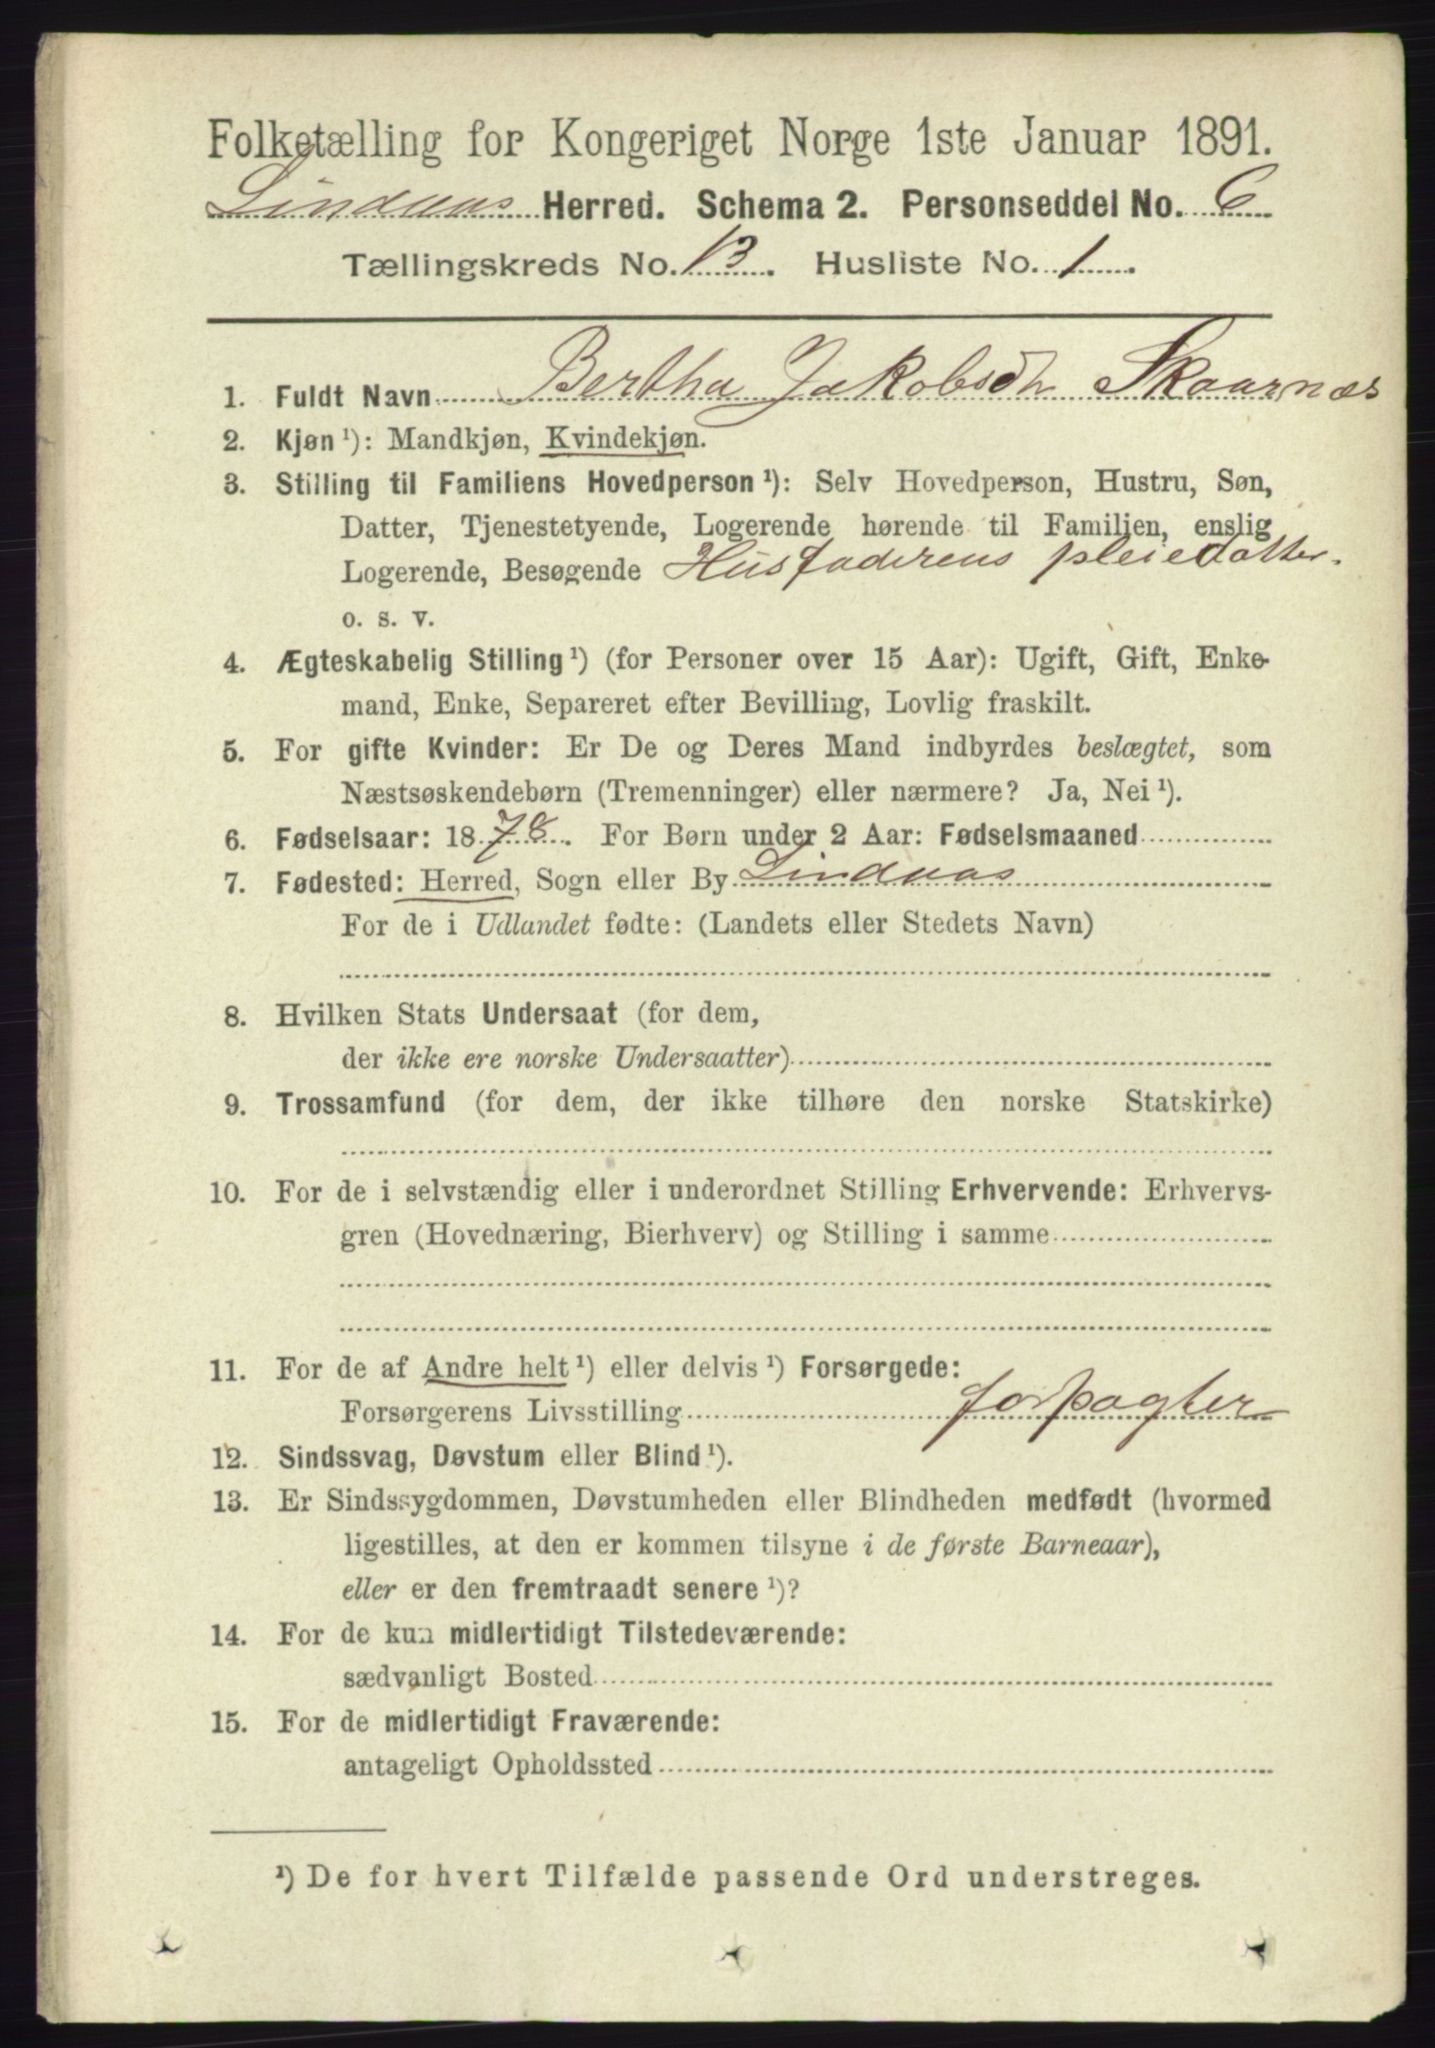 Folketælling for Kongeriget Norge 1ste Januar 1891.
Lindaas Herred. Schema 2. Personseddel No. 6
Tællingskreds No. 13. Husliste No. 1.
1. Fuldt Navn Bertha Jakobsdtr Skaarnæs
2. Kjøn ¹): Mandkjøn, Kvindekjøn.
3. Stilling til Familiens Hovedperson ¹): Selv Hovedperson, Hustru, Søn,
Datter, Tjenestetyende, Logerende hørende til Familien, enslig
Logerende, Besøgende Husfaderens pleiedatter.
o. s. v.
4. Ægteskabelig Stilling ¹) (for Personer over 15 Aar): Ugift, Gift, Enke-
mand, Enke, Separeret efter Bevilling, Lovlig fraskilt.
5. For gifte Kvinder: Er De og Deres Mand indbyrdes beslægtet, som
Næstsøskendebørn (Tremenninger) eller nærmere? Ja, Nei ¹).
6. Fødselsaar: 1878. For Børn under 2 Aar: Fødselsmaaned
7. Fødested: Herred, Sogn eller By Lindaas
For de i Udlandet fødte: (Landets eller Stedets Navn)
8. Hvilken Stats Undersaat (for dem,
der ikke ere norske Undersaatter)
9. Trossamfund (for dem, der ikke tilhøre den norske Statskirke)
10. For de i selvstændig eller i underordnet Stilling Erhvervende: Erhvervs-
gren (Hovednæring, Bierhverv) og Stilling i samme
11. For de af Andre helt ¹) eller delvis ¹) Forsørgede:
Forsørgerens Livsstilling forpagter
12. Sindssvag, Døvstum eller Blind ¹).
13. Er Sindssygdommen, Døvstumheden eller Blindheden medfødt (hvormed
ligestilles, at den er kommen tilsyne i de første Barneaar),
eller er den fremtraadt senere ¹)?
14. For de kun midlertidigt Tilstedeværende:
sædvanligt Bosted
15. For de midlertidigt Fraværende:
antageligt Opholdssted
¹) De for hvert Tilfælde passende Ord understreges.